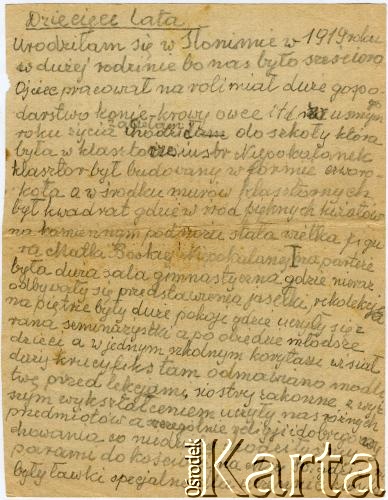 Dziecięce lata
urodziłam się w Słonimie w 1919 roku
w dużej rodzinie bo nas było sześcioro
Ojciec pracował na roli miał duże gospo-
darstwo konie krowy owce itd w ósmym
roku życia do szkoły która
była w klasztorze sióstr Niepokalanek
klasztor był budowany w formie czworo-
kąta a w środku murów klasztornych
był kwadrat gdzie wśród pięknych kwiatów
na kamiennym podmurzu stała wielka figu
ra Matka Boskiej Niepokalanej na parterze
była duża sala gimnastyczna gdzie nieraz
odbywały się przedstawienia jasełki, rekolekcje
na piętrze były duże pokoje gdzie uczyły się z
rana seminarzystki a po obiedzie młodsze
dzieci a w jednym szkolnym korytarzu wisiał
duży krucyfiks tam odmawiano modli
twę przed lekcjami, siostry zakonne z wyż
szym wykształceniem uczyły nas różnych
przedmiotów a szczególnie religji i dobrego
chowania co niedziela
parami do kościoła
były ławki specjalne
Ośrodek
Karta